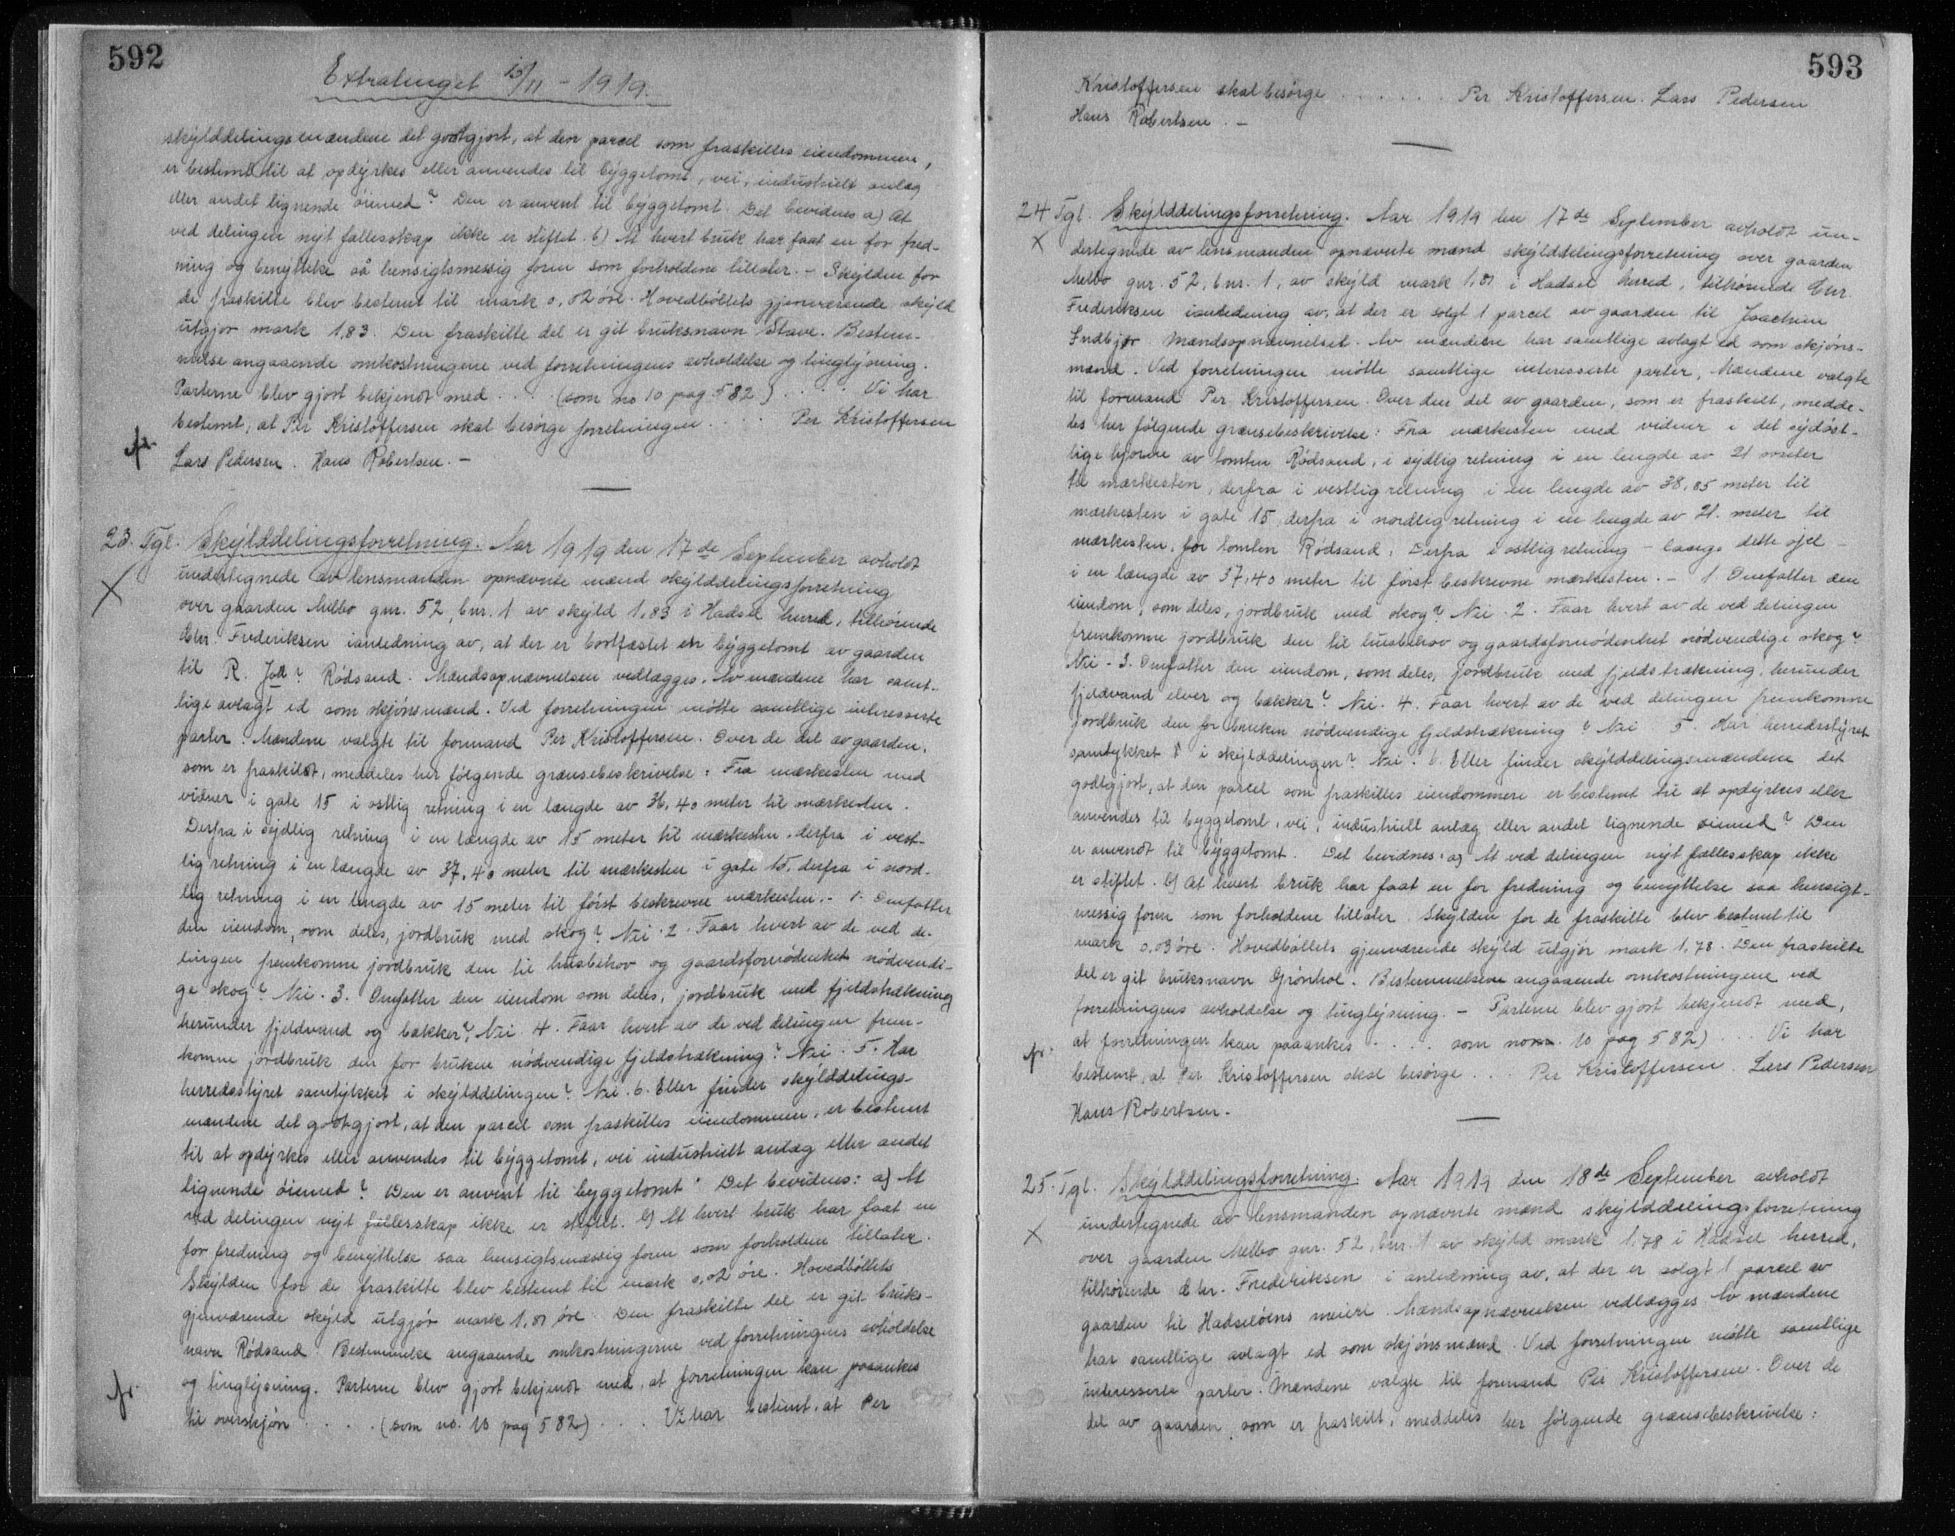 592
Extratinget 15/11 - 1919.
skylddelingsmændene det godtgjort, at den parcel som fraskilles eiendommen,
er bestemt til at opdyrkes eller anvendes til byggetomt, vei, industrielt anlæg
eller andet lignende øiemed? Den er anvent til byggetomt. Det bevidnes a) At
ved delingen nyt fællesskap ikke er stiftet. b) At hvert bruk har faat en for fred-
ning og benyttelse så hensigtsmessig form som forholdene tillater. - Skylden for
de fraskilte blev bestemt til mark 0,02 øre. Hovedbøllets gjenværende skyld
utgjør mark 1,83. Den fraskilte del er git bruksnavn Stave. Bestem-
melse angaaende omkostningene ved forretningens avholdelse og tinglysning.
Parterne blev gjort bekjendt med . . . . (som no 10 pag 582) . . . . Vi har
bestemt, at Per Kristoffersen skal besørge forretningen . . . . Per Kristoffersen
Lars Pedersen. Hans Robertsen. -
23. Tgl. Skylddelingsforretning. Aar 1919 den 17de September avholdt
undertegnede av lensmanden opnævnte mænd skylddelingsforretning
over gaarden Melbo gnr. 52, bnr. 1 av skyld 1,83 i Hadsel herred, tilhørende
Chr. Frederiksen ianledning av, at der er bortfæstet en byggetomt av gaarden
til R. ? Rødsand. Mændsopnævnelsen vedlægges. Av mændene har samt-
lige avlagt ed som skjønsmænd. Ved forretningen møtte samtlige interesserte
parter. Mændene valgte til formand Per Kristoffersen. Over de del av gaarden,
som er fraskildt, meddeles her følgende grænsebeskrivelse: Fra mærkesten med
vidner i gate 15 i østlig retning i en længde av 36,40 meter til mærkesten.
Derfra i sydlig retning i en længde av 15 meter til mærkesten, derfra i vest-
lig retning i en længde av 37,40 meter til mærkesten i gate 15, derfra i nord-
lig retning i en længde av 15 meter til først beskrevne mærkesten. - 1. Omfatter
den eiendom, som deles, jordbruk med skog? Nei. 2. Faar hvert av de ved de-
lingen fremkomne jordbruk den til husbehov og gaardsfornødenhet nødvendi-
ge skog? Nei. 3. Omfatter den eiendom som deles, jordbruk med fjeldstrækning
herunder fjeldvand og bækker? Nei. 4. Faar hvert av de ved delingen frem-
komne jordbruk den for bruken nødvendige fjeldstrækning? Nei. 5. Har
herredsstyret samtykket i skylddelingen? Nei. 6. Eller finder skylddelings-
mændene det godtgjort, at den parcel som fraskilles eiendommen, er bestemt
til at opdyrkes eller anvendes til byggetomt, vei industrielt anlæg eller andet
lignende øiemed? Den er anvent til byggetomt. Det bevidnes: a) At
ved delingen nyt fællesskap ikke er stiftet. b) At hvert bruk har faat en
for fredning og benyttelse saa hensigtsmæssig form som forholdene tillater.
Skylden for de fraskilte blev bestemt til mark 0,02 øre. Hovedbøllets
gjenværende skyld utgjør mark 1,81 øre. Den fraskilte del er git bruks-
navn Rødsand. Bestemmelse angaaende omkostningerne ved forretningens avholdelse
og tinglysning. Parterne blev gjort bekjendt med, at forretningen kan paaankes
til overskjøn . . . . . (som no. 10 pag 582) . . . . Vi har bestemt, at Per
593
Kristoffersen skal besørge . . . . . . Per Kristoffersen. Lars Pedersen
Hans Robertsen. -
24 Tgl. Skylddelingsforretning. Aar 1919 den 17de September avholdt un-
dertegnede av lensmanden opnævnte mænd skylddelingsforretning over gaarden
Melbo gnr. 52, bnr. 1, av skyld mark 1,81 i Hadsel herred, tilhørende Chr.
Frederiksen ianledning av, at der er solgt 1 parcel av gaarden til Joachim
Indbjør. Mændsopnævnelset. Av mændene har samtlige avlagt ed som skjøns-
mænd. Ved forretningen møtte samtlige interesserte parter. Mændene valgte
til formand Per Kristoffersen. Over den del av gaarden, som er fraskilt, medde-
les her følgende grænsebeskrivelse: Fra mærkesten med vidner i det sydøst-
lige hjørne av tomten Rødsand, i sydlig retning i en lengde av 21 meter
til mærkesten, derfra i vestlig retning i en lengde av 38,85 meter til
mærkesten i gate 15, derfra i nordlig retning i en lengde av 21. meter til
mærkesten, for tomten Rødsand. Derfra i østlig retning - langs dette skjel -
i en længde av 37,40 meter til først beskrevne mærkesten. - 1 Omfatter den
eiendom, som deles, jordbruk med skog? Nei. 2. Faar hvert av de ved delingen
fremkomne jordbruk den til husbehov og gaardsfornødenhet nødvendige skog?
Nei - 3. Omfatter den eiendom, som deles, jordbruk med fjeldstrækning, herunder
fjeldvand elver og bækker? Nei. 4. Faar hvert av de ved delingen fremkomne
jordbruk den for bruken nødvendige fjeldstrækning? Nei 5. Har herredsstyret
samtykket i skylddelingen? Nei. 6. Eller finder skylddelingsmændene det
godtgjort, at den parcel som fraskilles eiendommen er bestemt til at opdyrkes eller
anvendes til byggetomt, vei, industrielt anlæg eller andet lignende øiemed? Den
er anvendt til byggetomt. Det bevidnes: a) At ved delingen nyt fællesskap ikke
er stiftet. b) At hvert bruk har faat en for fredning og benyttelse saa hensigt-
messig form som forholdene tillater. Skylden for de fraskilte blev bestemt til
mark 0,03 øre. Hovedbøllets gjenværende skyld utgjør mark 1,78. Den fraskilte
del er git bruksnavn Grønhol. Bestemmelserne angaaende omkostningene ved
forretningens avholdelse og tinglysning. - Parterne blev gjort bekjendt med,
at forretningen kan paaankes . . . . som no 10 pag 582) . . Vi har
bestemt, at Per Kristoffersen skal besørge . . . Per Kristoffersen. Lars Pedersen
Hans Robertsen. -
25. Tgl. Skylddelingsforretning. Aar 1919 den 18de September avholdt
undertegnede av lensmanden opnævnte mænd skylddelingsforretning
over gaarden Melbo gnr. 52, bnr. 1 av skyld mark 1,78 i Hadsel herred,
tilhørende Chr. Frederiksen i anledning av, at der er solgt 1 parcel av
gaarden til Hadseløens meieri. Mændsopnævnelsen vedlægges. Av mændene
har samtlige avlagt ed som skjønsmænd. Ved forretningen møtte samtlige
interesserte parter. Mændene valgte til formand Per Kristoffersen. Over de
del av gaarden, som er fraskilt, meddeles her følgende grænsebeskrivelse: